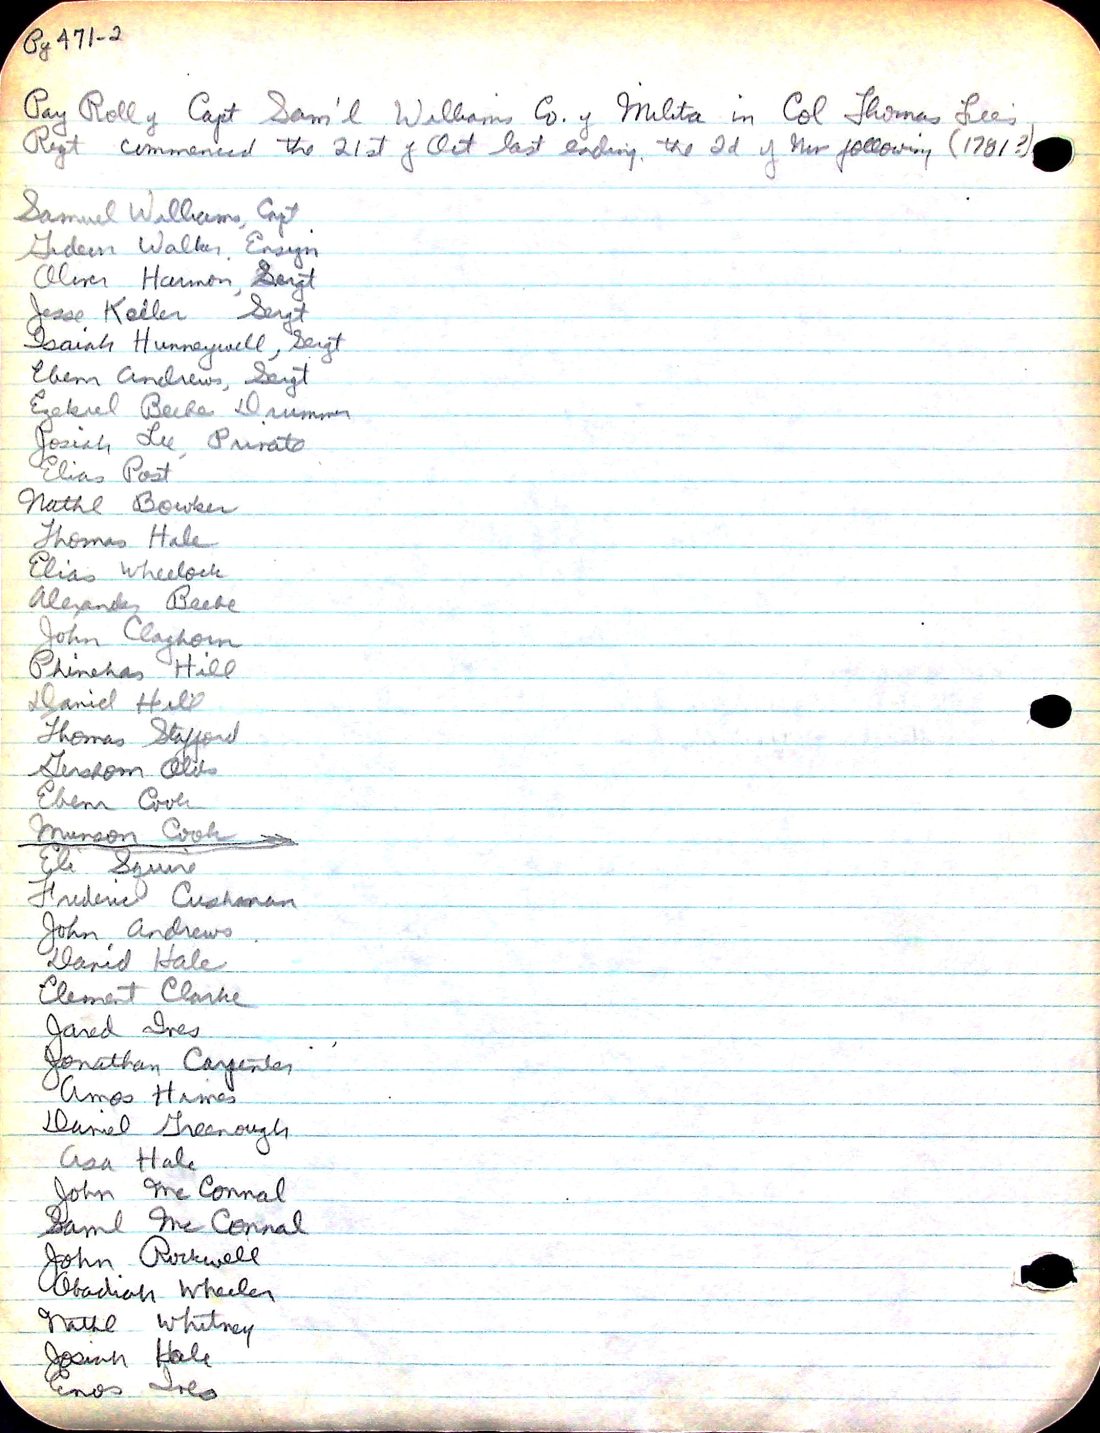 Pg 471-2
Pay Roll of Capt Sam'l Williams Co. of Milita in Col Thomas Lee's
Regt commenced the 21st of Oct last ending the 2d of Nov following (1781?)
Samuel Williams, Capt
Gideon Walker, Ensign
Oliver Harmon, Sergt
Jesse Keeler Sergt
Isaiah Hunneywell, Sergt
Ebenr Andrews, Sergt
Ezekiel Beebe Drummer
Josiah Lee, Private
Elias Post
Nathl Bowker
Thomas Hale
Elias Wheelock
Alexander Beebe
John Claghorn
Phinehas Hill
Daniel Hill
Thomas Stafford
Gershom Olds
Ebenr Cook
Munson Cook
Eli Squire
Frederic Cushman
John Andrews
David Hale
Clement Clarke
Jared Ives
Jonathan Carpenter
Amos Himes
Daniel Greenough
Asa Hale
John McConnal
Saml McConnal
John Rockwell
Obadiah Wheeler
Nathl Whitney
Josiah Hale
Enos Ives